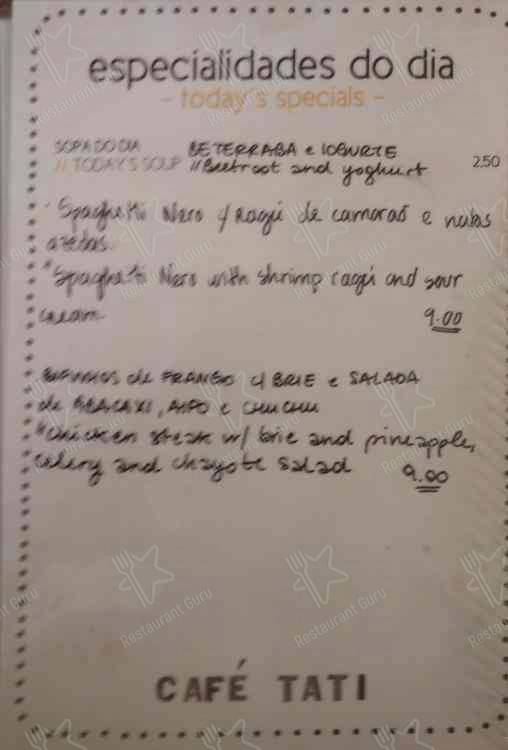 especialidades do dia
- today's specials -
SOPA DO DIA BETERRABA e IOGURTE
// TODAY'S SOUP // Beetroot and yoghurt 2.50
Spaghetti Nero c/ Ragú de camarão e natas
azedas.
"Spaghetti Nero with shrimp ragú and sour
cream. 9.00
de FRANGO c/ BRIE e SALADA
de ABACAXI, AIPO e CHUCHU
"chicken steak w/ brie and pineapple,
celery and chayote salad 9.00
CAFÉ TATI
Restaurant Guru